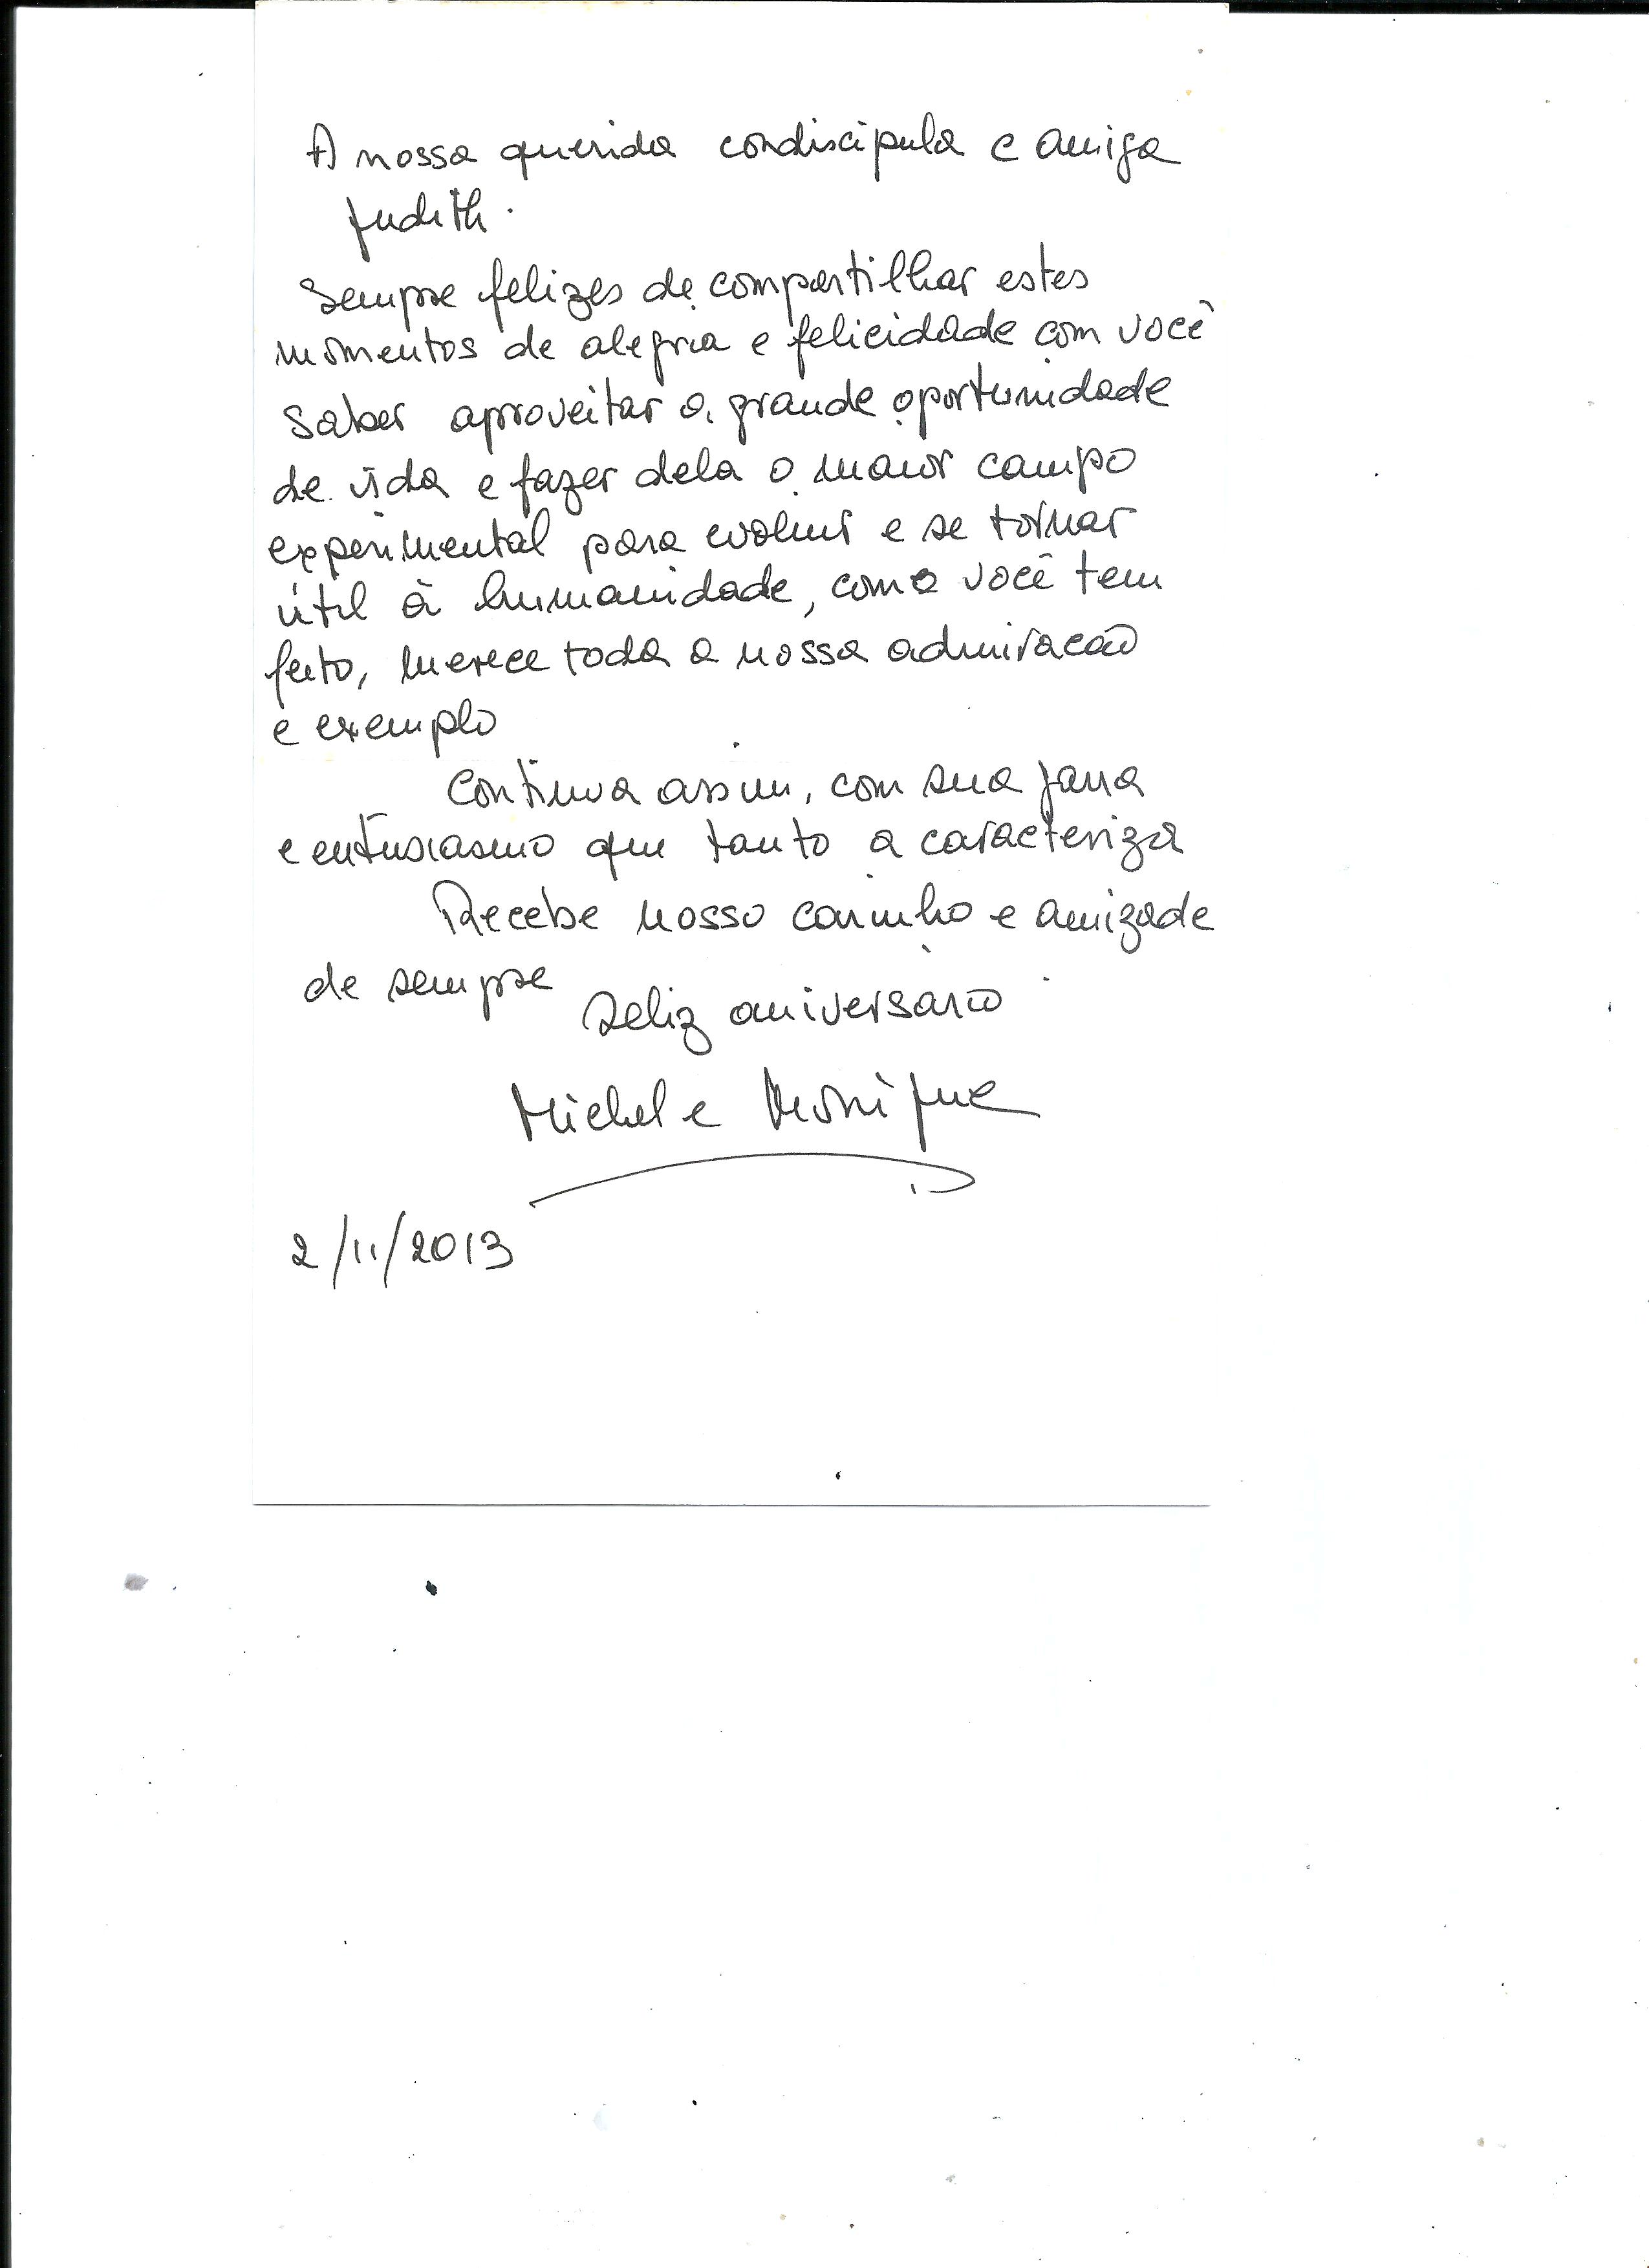 A nossa querida condiscipula e amiga
Judith.
Sempre felizes de compartilhar estes
momentos de alegria e felicidade com você
Saber aproveitar a grande oportunidade
de vida e fazer dela o maior campo
experimental para evoluir e se tornar
útil à humanidade, como você tem
feito, merece toda a nossa admiracão
e exemplo
Continua assim, com sua garra
e entusiasmo que tanto a caracteriza
Recebe nosso carinho e amizade
de sempre
Feliz aniversario
Michel e Monique
2/11/2013